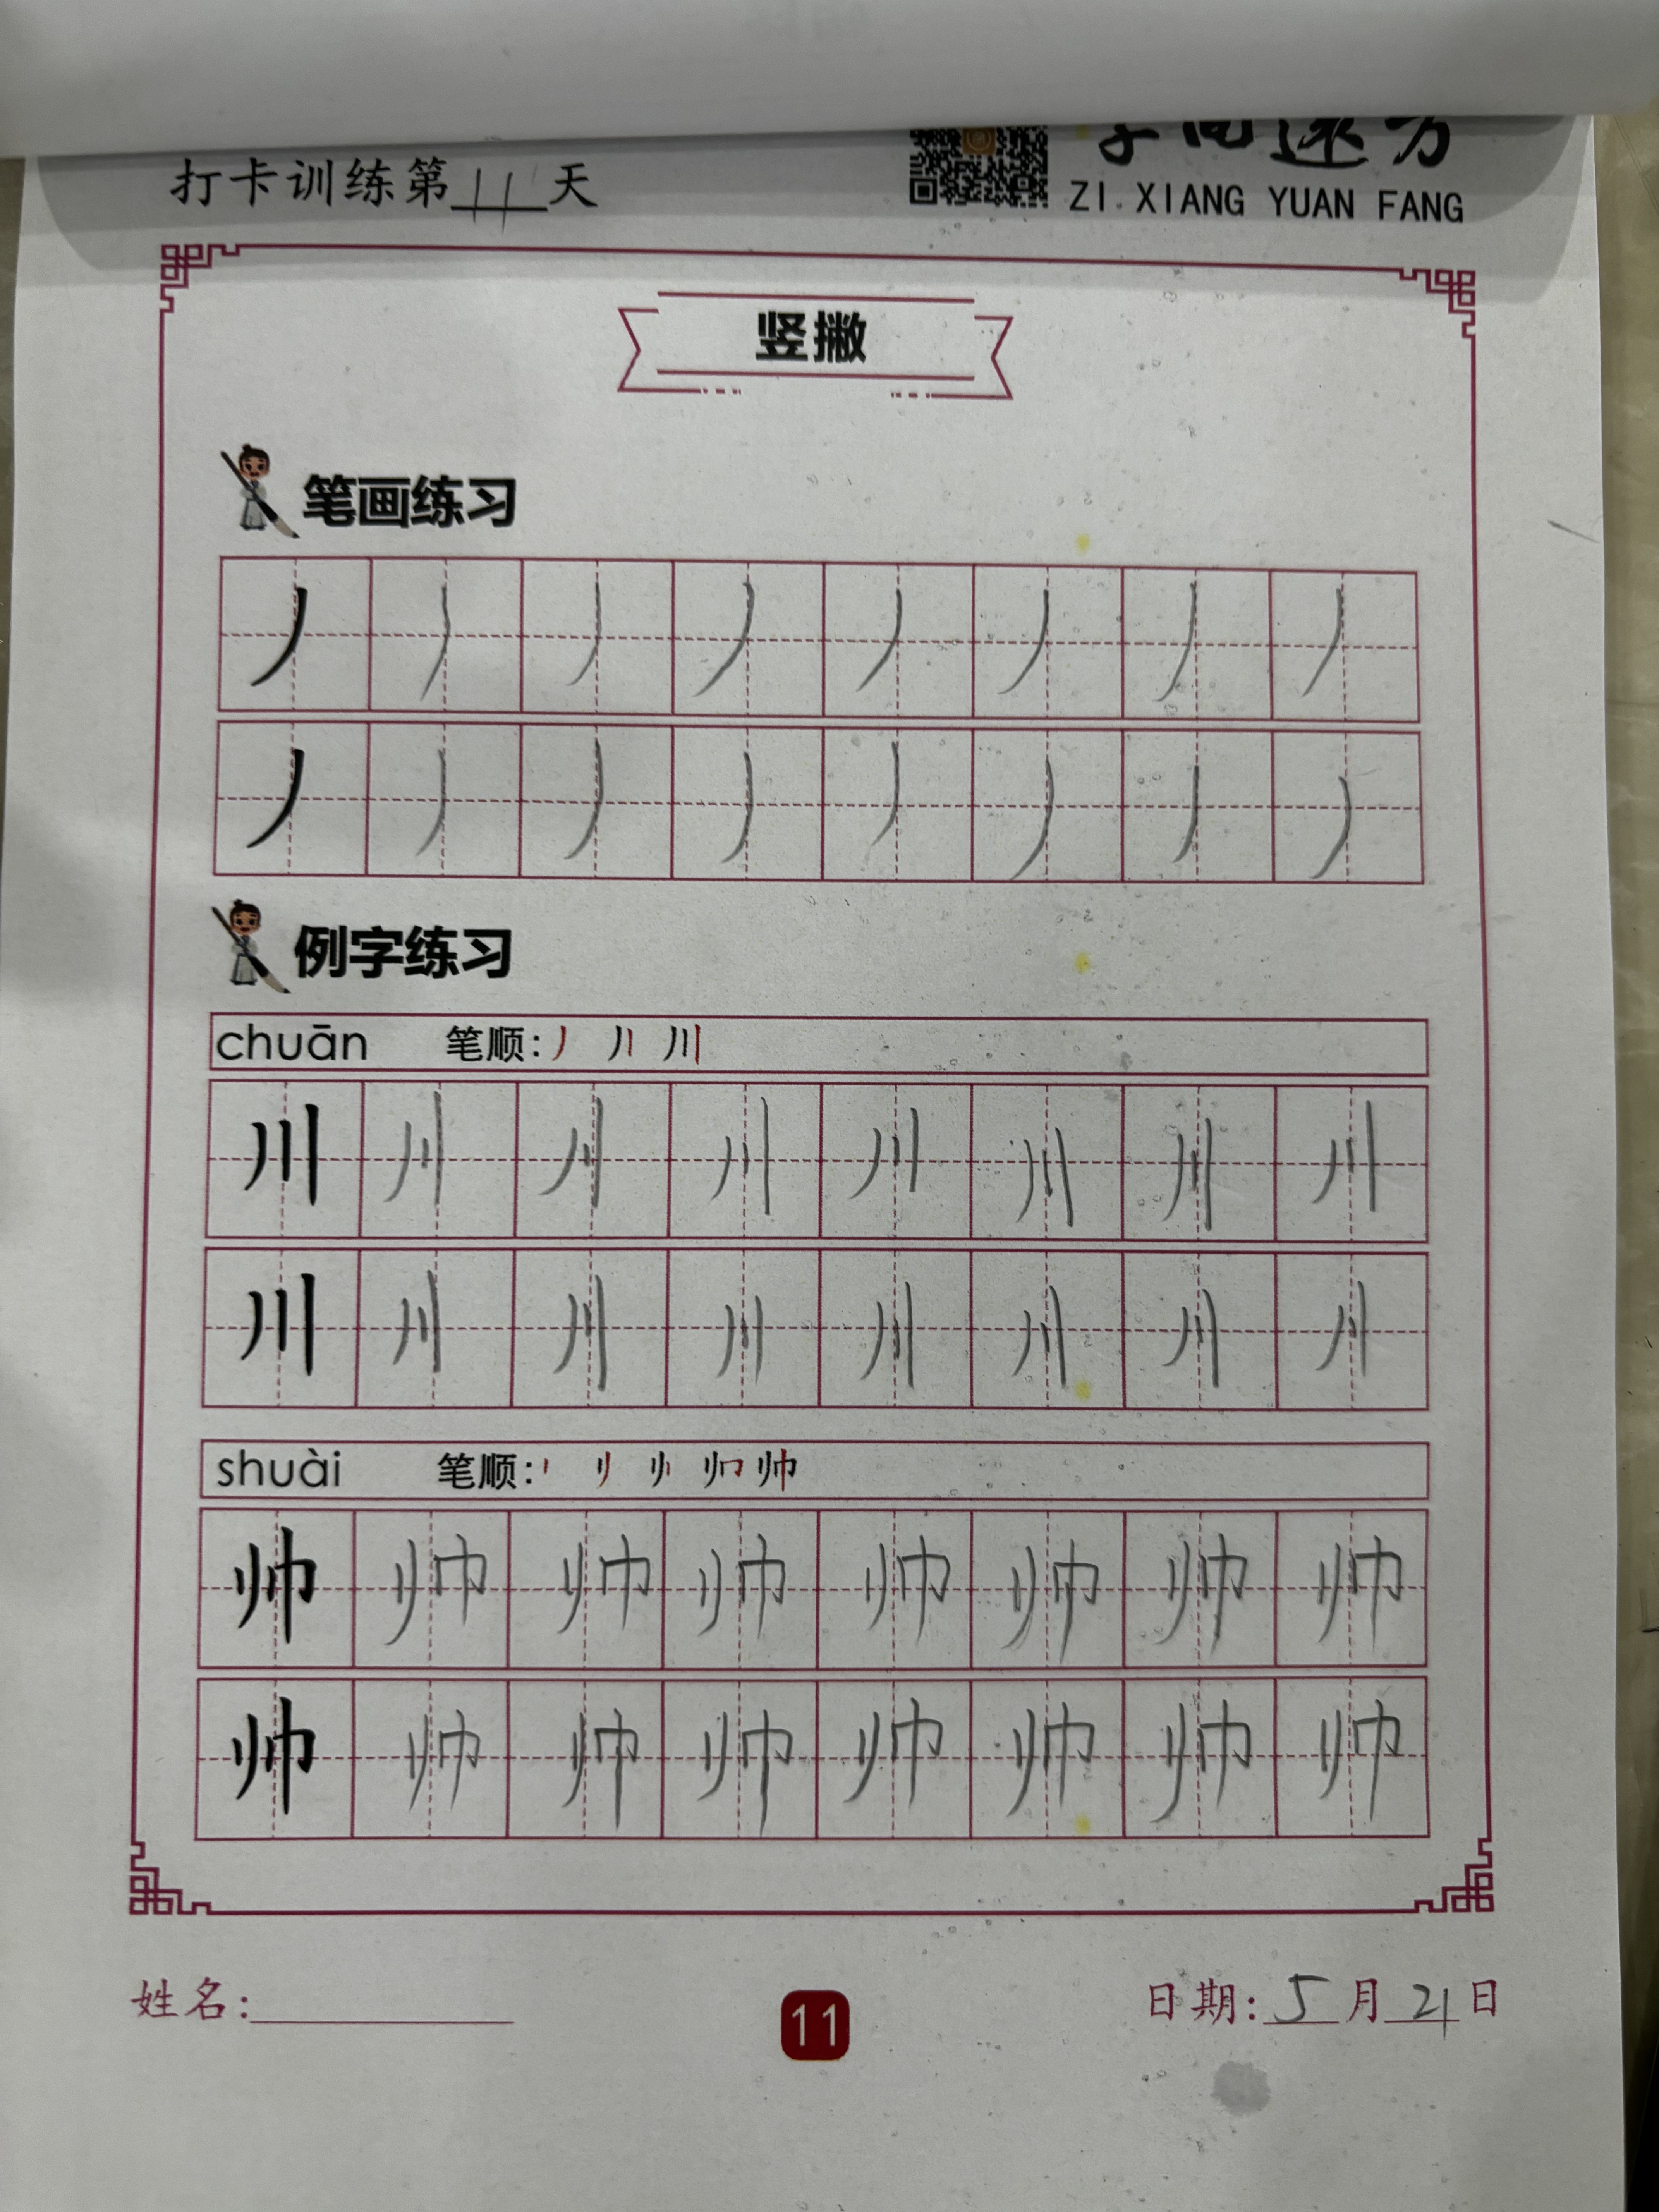 打卡训练第 11 天
ZI XIANG YUAN FANG
竖撇
笔画练习
丿 丿 丿 丿 丿 丿 丿 丿
丿 丿 丿 丿 丿 丿 丿 丿
例字练习
chuān 笔顺:
川 川 川 川 川 川 川 川
川 川 川 川 川 川 川 川
shuài 笔顺:
帅 帅 帅 帅 帅 帅 帅 帅
帅 帅 帅 帅 帅 帅 帅 帅
姓名:
11
日期: 5 月 21 日